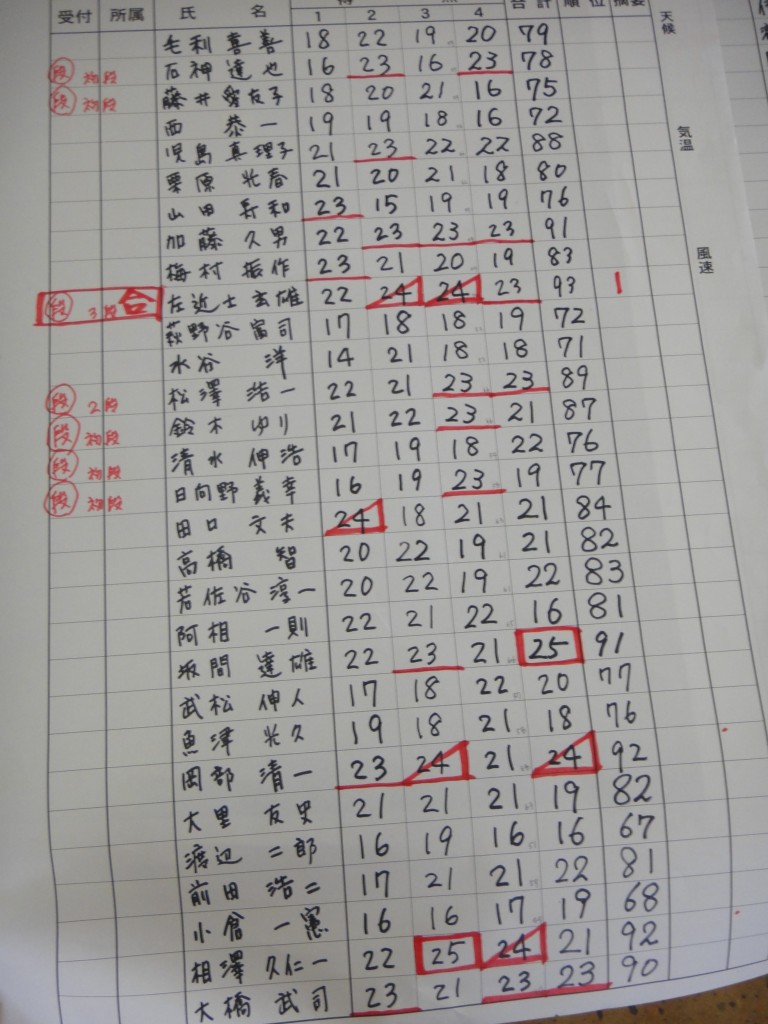 受付 所属 氏 名 1 2 3 4 合計 順位 摘要
毛利喜善 18 22 19 20 79
段 初段 石神達也 16 23 16 23 78
段 初段 藤井愛友子 18 20 21 16 75
西 恭一 19 19 18 16 72
児島真理子 21 23 22 22 88
栗原光春 21 20 21 18 80
山田寿和 23 15 19 19 76
加藤久男 22 23 23 23 91
梅村振作 23 21 20 19 83
段 3段 合 左近士玄雄 22 24 24 23 93 1
萩野谷富司 17 18 18 19 72
水谷 洋 14 21 18 18 71
段 2段 松澤浩一 22 21 23 23 89
段 初段 鈴木ゆり 21 22 23 21 87
段 初段 清水伸浩 17 19 18 22 76
段 初段 日向野義幸 16 19 23 19 77
田口文夫 24 18 21 21 84
高橋 智 20 22 19 21 82
若佐谷淳一 20 22 19 22 83
阿相一則 22 21 22 16 81
坂間達雄 22 23 21 25 91
武松伸人 17 18 22 20 77
魚津光久 19 18 21 18 76
岡部清一 23 24 21 24 92
大里友史 21 21 21 19 82
渡辺二郎 16 19 16 16 67
前田浩二 17 21 21 22 81
小倉一憲 16 16 17 19 68
相澤久仁一 22 25 24 21 92
大橋武司 23 21 23 23 90
天候
気温
風速